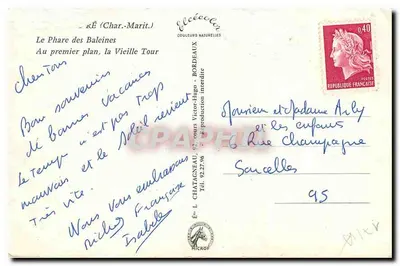 RÉ (Char.-Marit.)
Le Phare des Baleines
Au premier plan, la Vieille Tour
Chers Tous
Bon souvenirs
de bonnes vacances
Le temps n'est pas trop
mauvais et le soleil revient
Très vite.
Nous vous embrassons
Michel Françoise
Isabelle
Elcécolor
COULEURS NATURELLES
Ets L. CHATAGNEAU, Cours Victor-Hugo - BORDEAUX
Tél. 92.27.96
reproduction interdite
0,40
Monsieur et Madame
et les enfants
6 Rue Champagne
Sarcelles
95